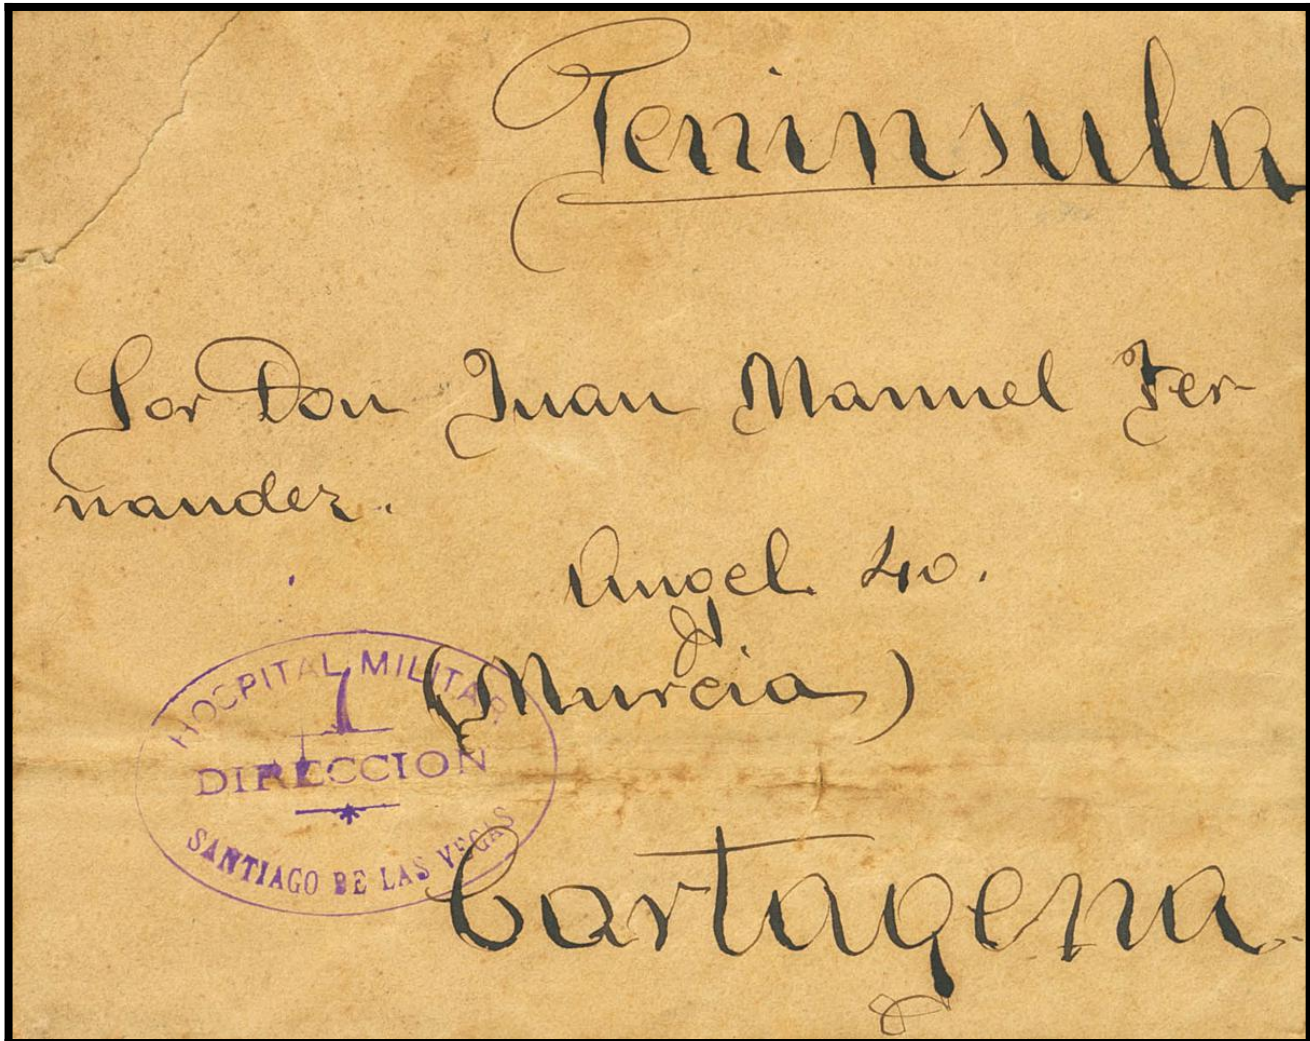 Peninsula
Sor Don Juan Manuel Fer-
nandez.
Angel 40.
(Murcia)
HOSPITAL MILITAR
DIRECCION
SANTIAGO DE LAS VEGAS
Cartagena.